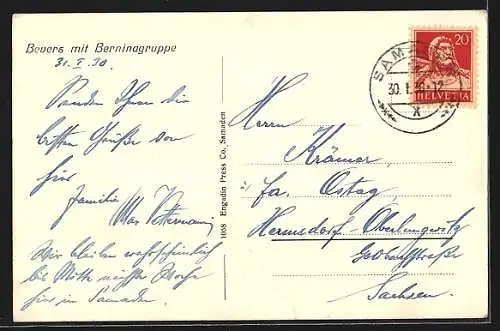 Bevers mit Berninagruppe
31. I. 30.
Senden Ihnen die
besten Grüße von
hier
Familie Max
Wir bleiben wahrscheinlich
bis Mitte nächster Woche
hier in Samaden.
1058 Engadin Press Co., Samaden
20
HELVETIA
SAMADEN
30. I. 30. 12
X
Herrn
Krämer,
fa. Ostag,
Hermsdorf-Oberlungwitz
Sachsen.